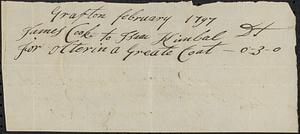 Grafton february 1797
James Cook to Isaac Kimbal Dt
for olterin a Greate Coat — 0-3-0